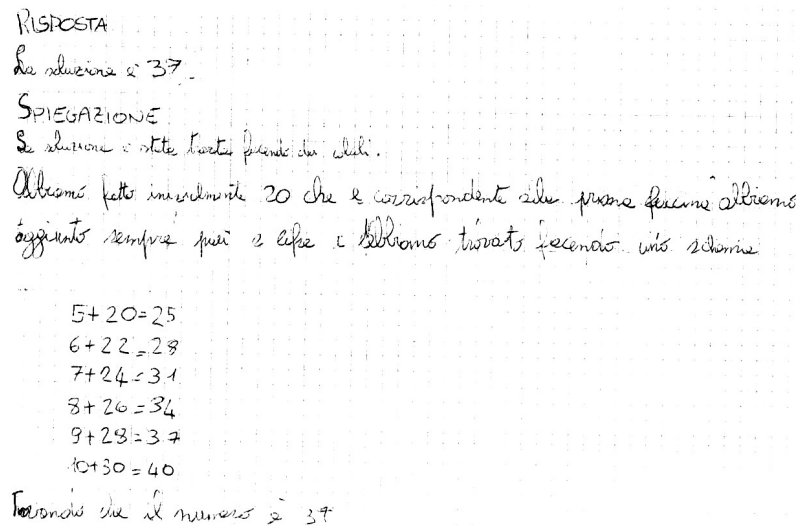 RISPOSTA
La soluzione è 37.
SPIEGAZIONE
La soluzione è stata trovata facendo dei calcoli.
Abbiamo fatto inizialmente 20 che è corrispondente alla prima abbiamo
aggiunto sempre e abbiamo trovato facendo uno schema
5+20=25
6+22=28
7+24=31
8+26=34
9+28=37
10+30=40
Trovando che il numero è 37